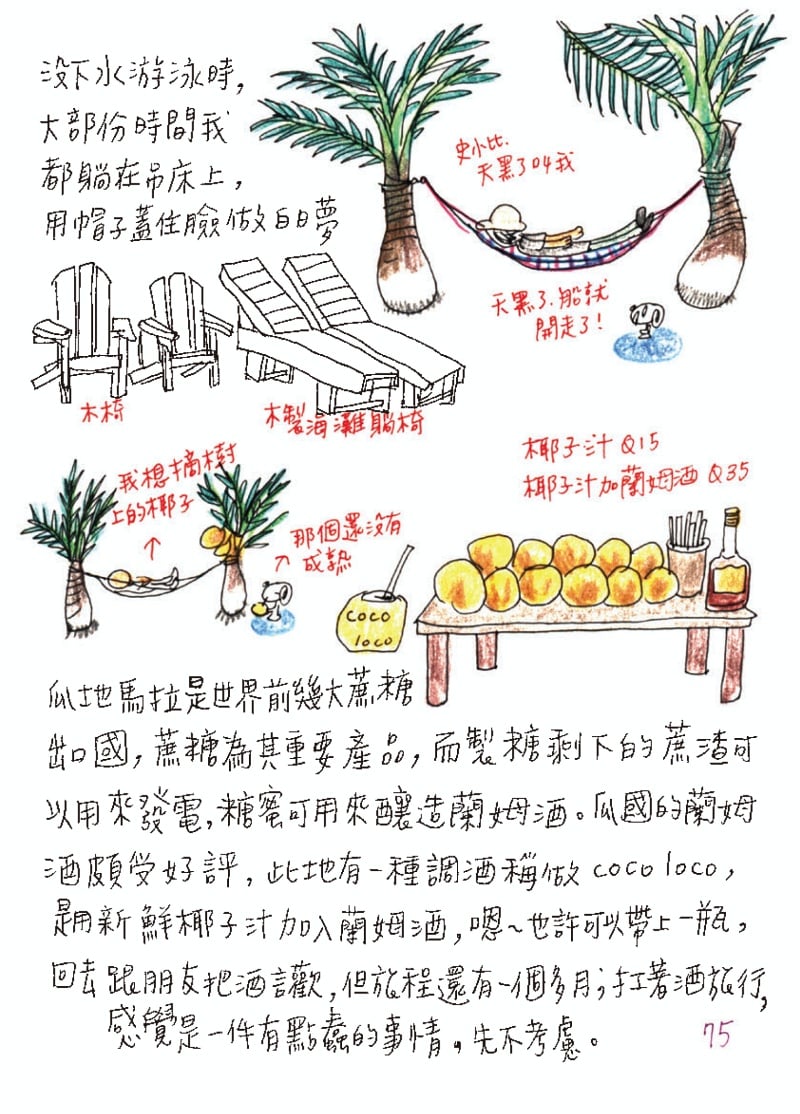 沒下水游泳時，
大部份時間我
都躺在吊床上，
用帽子蓋住臉做白日夢
史小比.
天黑了叫我
天黑了.船就
開走了!
木椅
木製海灘躺椅
我想摘樹
上的椰子
那個還沒有
成熟
椰子汁 Q15
椰子汁加蘭姆酒 Q35
coco
loco
瓜地馬拉是世界前幾大蔗糖
出口國，蔗糖為其重要產品，而製糖剩下的蔗渣可
以用來發電，糖蜜可用來釀造蘭姆酒。瓜國的蘭姆
酒頗受好評，此地有一種調酒稱做coco loco，
是用新鮮椰子汁加入蘭姆酒，嗯~也許可以帶上一瓶，
回去跟朋友把酒言歡，但旅程還有一個多月；扛著酒旅行，
感覺是一件有點蠢的事情。先不考慮。
75